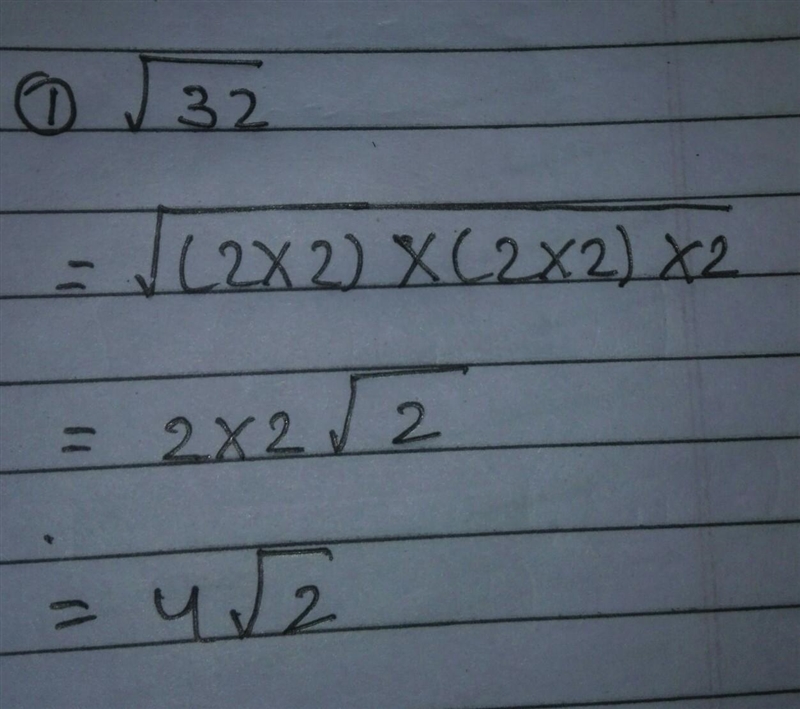 ① √32
= √(2×2) × (2×2) ×2
= 2×2√2
= 4√2